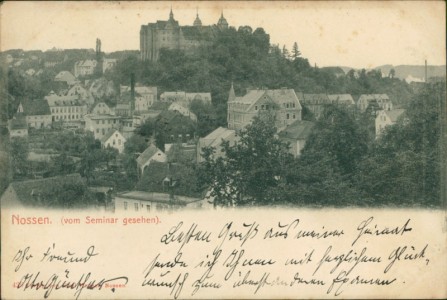 Nossen. (vom Seminar gesehen).
Besten Gruß aus meiner Heimat
sende ich Ihnen mit herzlichem Glück-
wunsch zum überstandenen Examen.
Ihr Freund
Otto Günther
Nossen